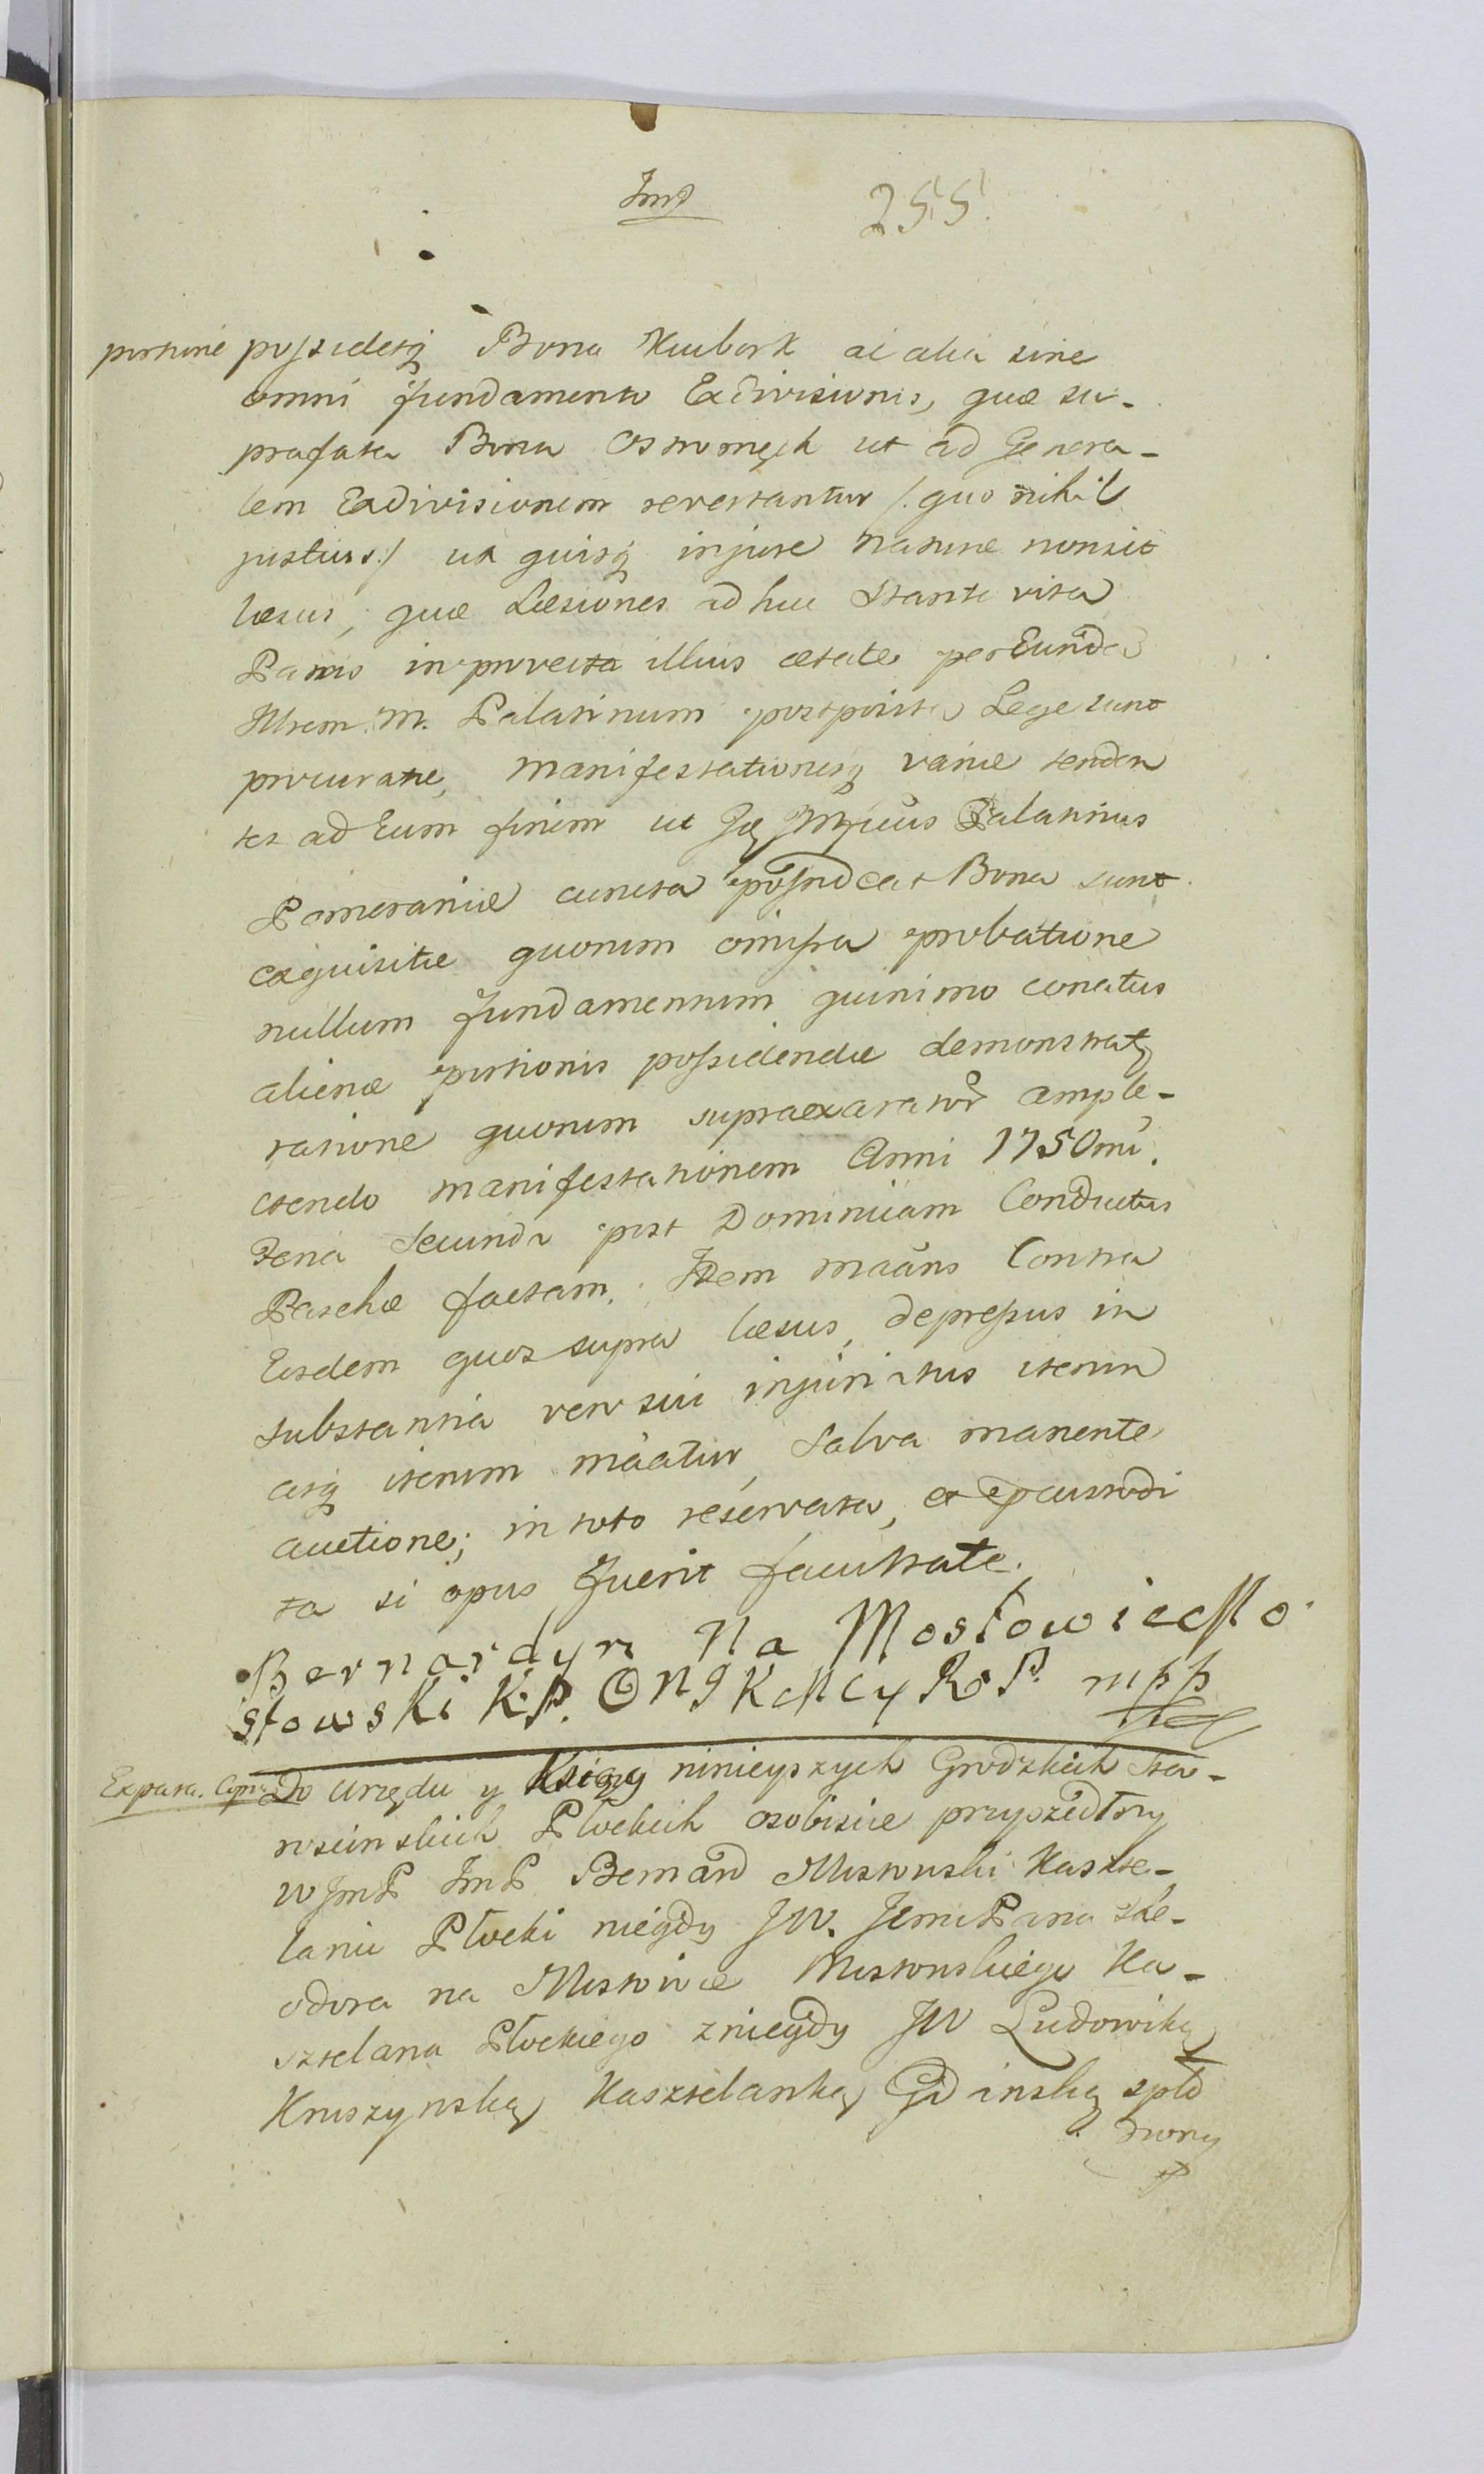 255.
portione possidetq Bona Kuubork ac alia sine
omni fundamento Exdivisionis, quæ su-
prafata Bona Ostromęck ut ad Genera-
lem Exdivisionem revertantur /: quo nihil
justius :/ ut quisq in jure naturæ non sit
læsus, quæ Læsiones ad huc stante vita
Patris in provecta illius ætate per Eunda
Illrem. M. Palatinum postposita Lege sunt
procuratæ, manifestationesq variæ tenden
tes ad Eum finem ut Palatinus
Pomeraniæ cuncta possideat Bona sunt
exquisitæ quorum omissa probatione
nullum fundamentum quinimo conatus
alienæ portionis possidendæ demonstratq
ratione quorum supraexarator ample-
ctendo manifestationem Anni 1750mi.
Feria Secunda post Dominicam Conductus
Paschæ factam. Idem mããns Contra
Eosdem quos supra læsus, depressus in
substantia vero sui injuriatus iterum
atq iterum mããtur, Salva manente
auctione; in toto reservata, et
ta si opus fuerit facultate.
Bernardyn Na Mostowie Mo
stowski K. P. mpp
Do Urzędu y Xsięg ninieyszych Grodzkich Sta-
rościnskich Płockich osobiscie przyszedłszy
W JmP JmP Bernard Mostowski Kaszte-
lanic Płocki niegdy JW. JemciPana The-
odora na Mostowie Mostowskiego Ka-
sztelana Płockiego z niegdy JW Ludowiką
Kruszynską Kasztelanką Gdinską spło
dzony